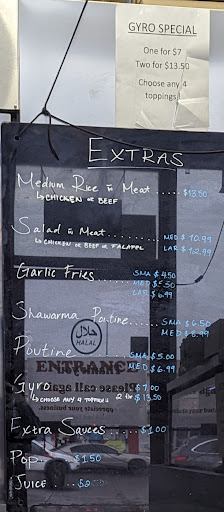 GYRO SPECIAL
One for $7
Two for $13.50
Choose any 4
toppings!
EXTRAS
Medium Rice n Meat.... $13.50
↳ CHICKEN or BEEF
Salad n Meat....... MED $10.99
↳ CHICKEN or BEEF or FALAFEL LAR $12.99
Garlic Fries SMA $4.50
MED $5.50
LAR $6.99
Shawarma Poutine... SMA $6.50
MED $8.99
حلال
HALAL
Poutine ..... SMA $5.00
MED $6.99
ENTRANCE
Gyro ..... $7.00
↳ CHOOSE ANY 4 TOPPINGS 2 for $13.50
Please call again
appreciate your business.
Extra Sauces..... $1.00
Pop.... $1.50
Juice ..